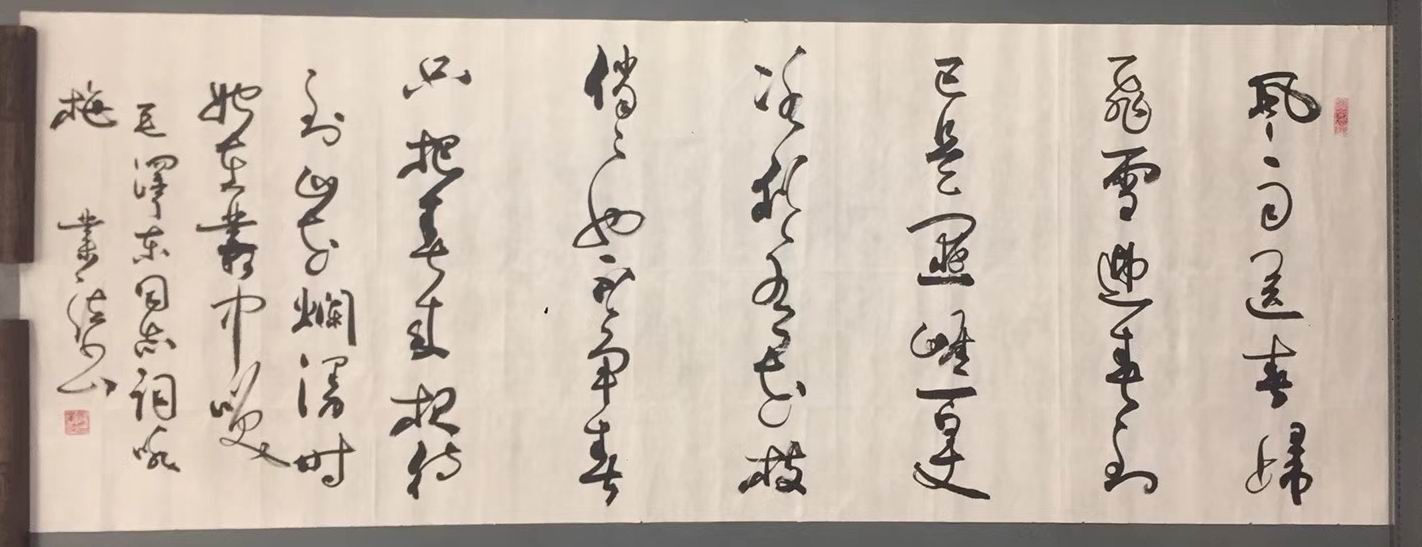 風雨送春歸
飛雪迎春到
已是懸崖百丈
冰猶有花枝
俏〻也不争春
只把春来报待
到山花爛漫时
她在叢中咲
毛澤东同志詞咏
梅